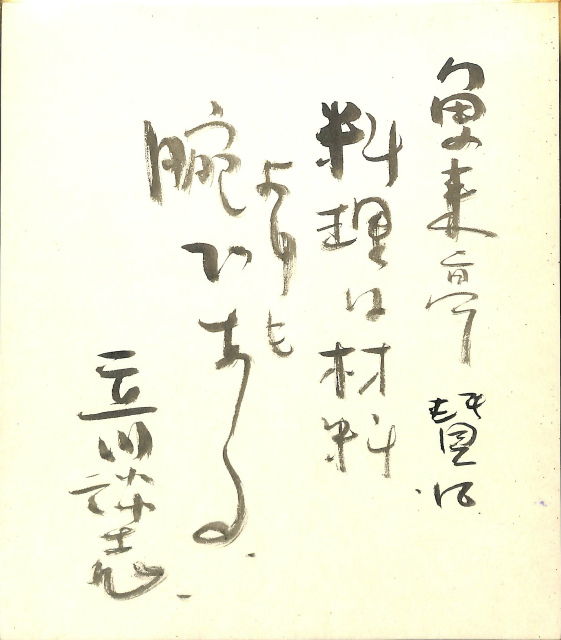 魚来亭 賛江
料理は材料
よりも
腕ひある
立川談志